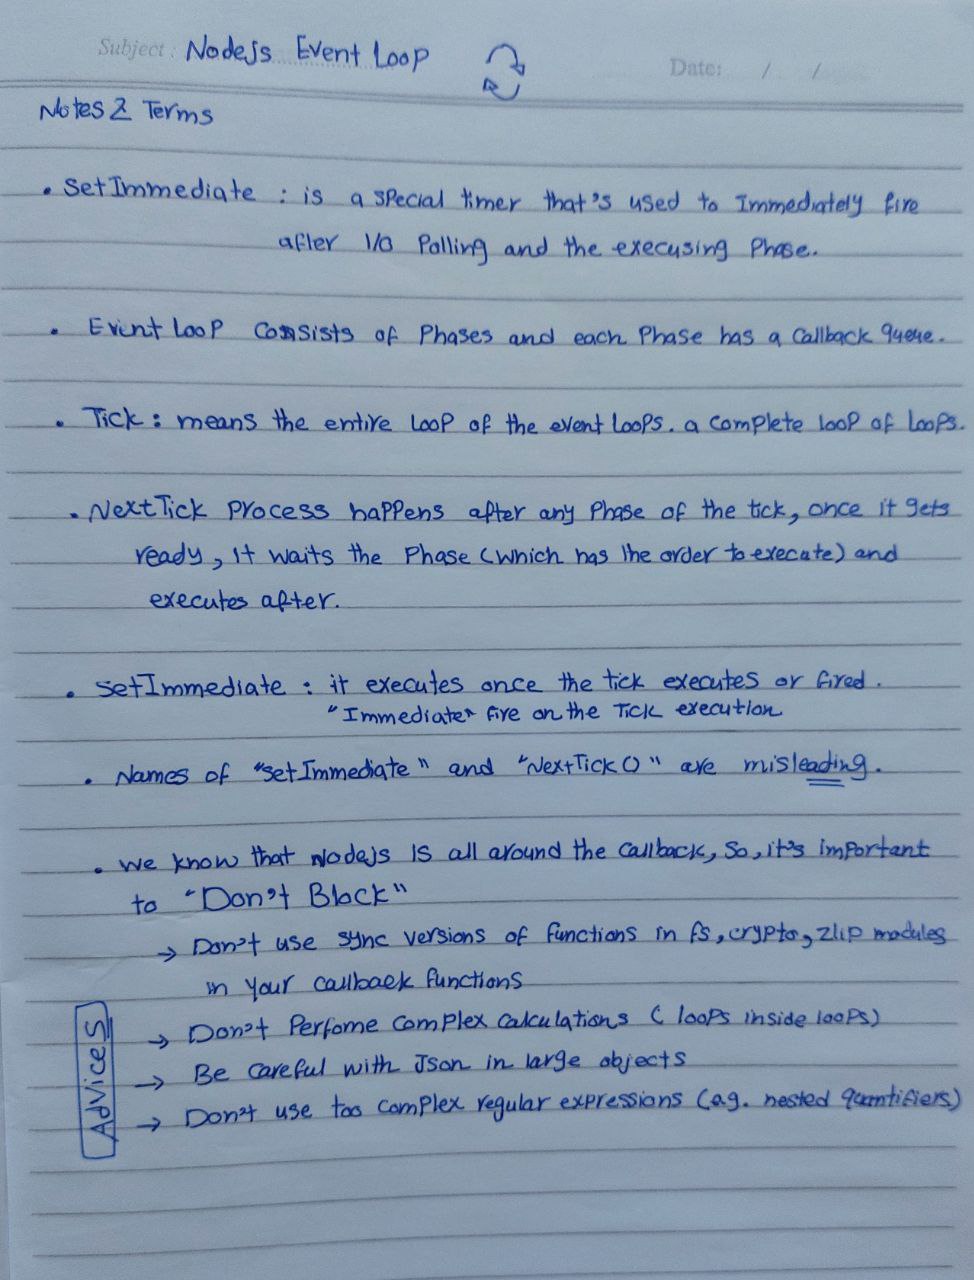 Subject : Nodejs Event Loop
Date: / /
Notes & Terms
• SetImmediate : is a special timer that's used to Immediately fire
after I/O Polling and the execusing Phase.
• Event Loop consists of Phases and each Phase has a Callback queue.
• Tick : means the entire Loop of the event Loops. a complete loop of Loops.
• NextTick Process happens after any Phase of the tick, once it gets
ready, it waits the Phase (which has the order to execute) and
executes after.
• setImmediate : it executes once the tick executes or fired.
"Immediate" fire on the Tick execution
• Names of "setImmediate" and "NextTick()" are misleading.
• we know that Nodejs is all around the callback, So, it's important
to "Don't Block"
→ Don't use sync versions of functions in fs, crypto, zlip modules
in your callback functions
Advices
→ Don't Perfome complex calculations ( loops inside loops)
→ Be careful with Json in large objects
→ Don't use too complex regular expressions (e.g. nested quantifiers)